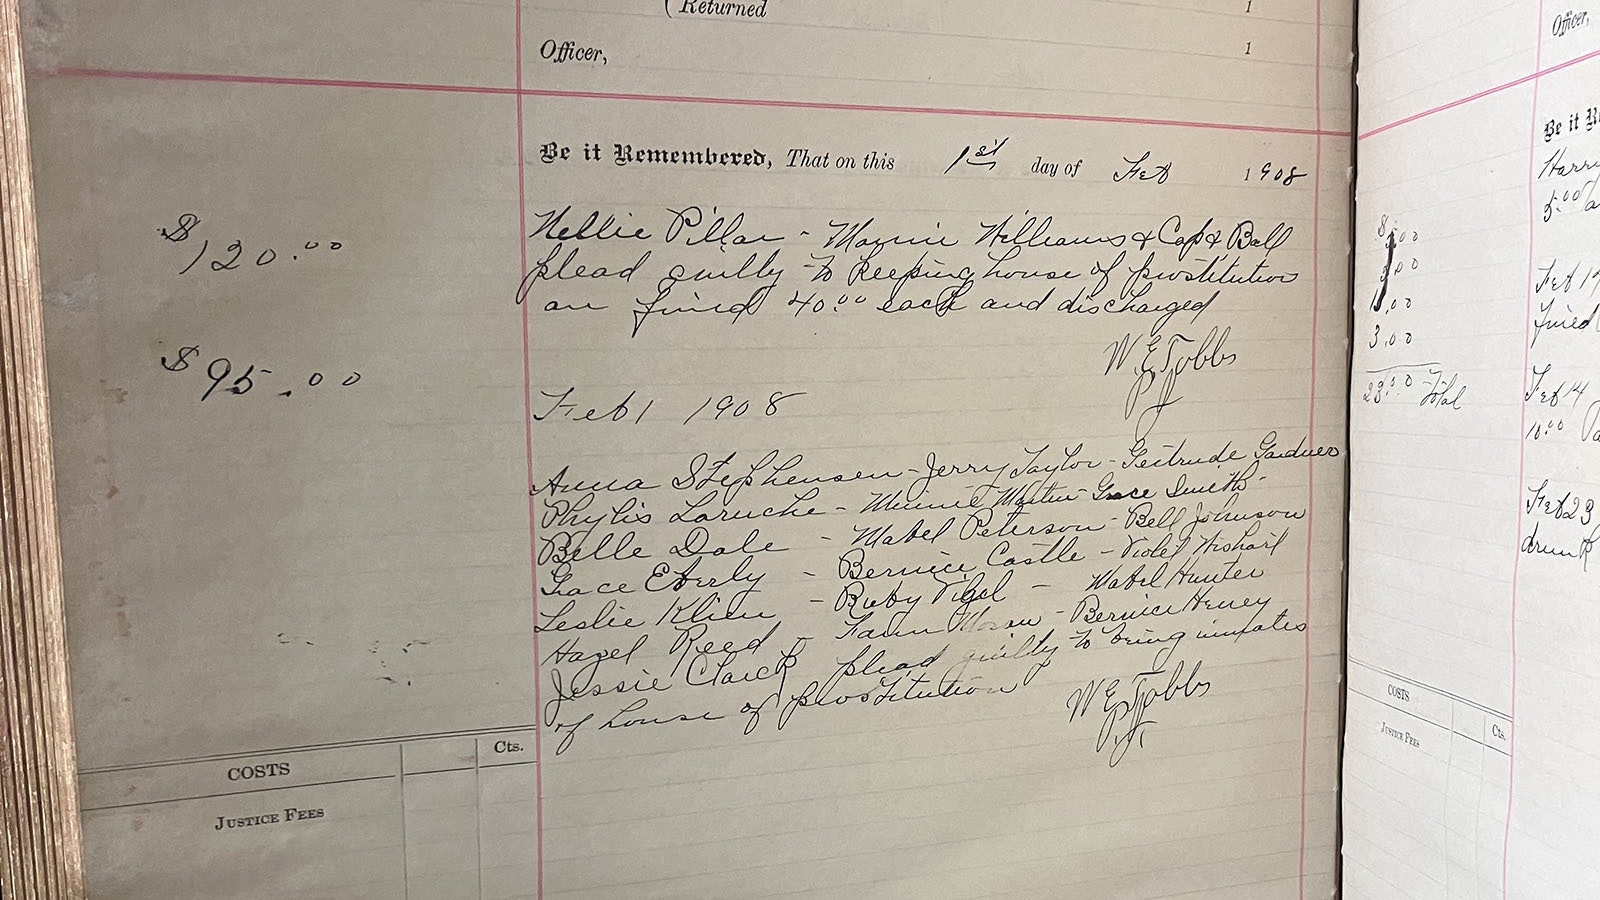 ( Returned 1
Officer, 1
Be it Remembered, That on this 1st day of Feb 1908
$120.00
Nellie Pillar - Mamie Williams & Capt Ball
plead guilty to keeping house of prostitution
an fined 40.00 each and discharged
W E Tobbs
PJ
$95.00
Feb 1 1908
Anna Stephensen - Jerry Taylor - Geitrude Gardner
Phylis Laruche - Minnie Martin Grace Smith -
Belle Dale - Mabel Peterson - Bell Johnson
Grace Eberly - Bernice Castle - Violet
Leslie Klien - Ruby Vigel - Mabel Hunter
Hazel Reed - Fawn Moran - Bernice Heney
Jessie Clark plead guilty to being inmates
of house of prostitution
W E Tobbs
P.J.
COSTS Cts.
Justice Fees
Officer,
Be it
Harry
5.00
3.00
Feb 17
fined
23.00 Total
Feb 14
10.00
Feb 23
drunk
COSTS Cts.
Justice Fees